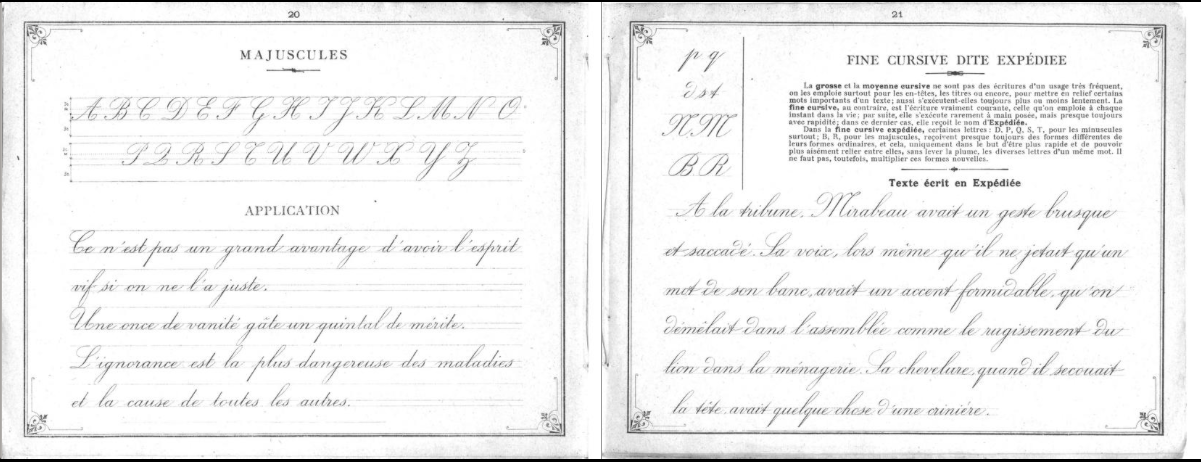 20
MAJUSCULES
A B C D E F G H I J K L M N O
P Q R S T U V W X Y Z
APPLICATION
Ce n'est pas un grand avantage d'avoir l'esprit
vif si on ne l'a juste.
Une once de vanité gâte un quintal de mérite.
L'ignorance est la plus dangereuse des maladies
et la cause de toutes les autres.
21
p q
d s t
N M
B R
FINE CURSIVE DITE EXPÉDIEE
La grosse et la moyenne cursive ne sont pas des écritures d'un usage très fréquent,
on les emploie surtout pour les en-têtes, les titres ou encore, pour mettre en relief certains
mots importants d'un texte; aussi s'exécutent-elles toujours plus ou moins lentement. La
fine cursive, au contraire, est l'écriture vraiment courante, celle qu'on emploie à chaque
instant dans la vie; par suite, elle s'exécute rarement à main posée, mais presque toujours
avec rapidité; dans ce dernier cas, elle reçoit le nom d'Expédiée.
Dans la fine cursive expédiée, certaines lettres: D, P, Q, S, T, pour les minuscules
surtout; B, R, pour les majuscules, reçoivent presque toujours des formes différentes de
leurs formes ordinaires, et cela, uniquement dans le but d'être plus rapide et de pouvoir
plus aisément relier entre elles, sans lever la plume, les diverses lettres d'un même mot. Il
ne faut pas, toutefois, multiplier ces formes nouvelles.
Texte écrit en Expédiée
A la tribune, Mirabeau avait un geste brusque
et saccadé. Sa voix, lors même qu'il ne jetait qu'un
mot de son banc, avait un accent formidable, qu'on
démêlait dans l'assemblée comme le rugissement du
lion dans la ménagerie. Sa chevelure, quand il secouait
la tête, avait quelque chose d'une crinière.